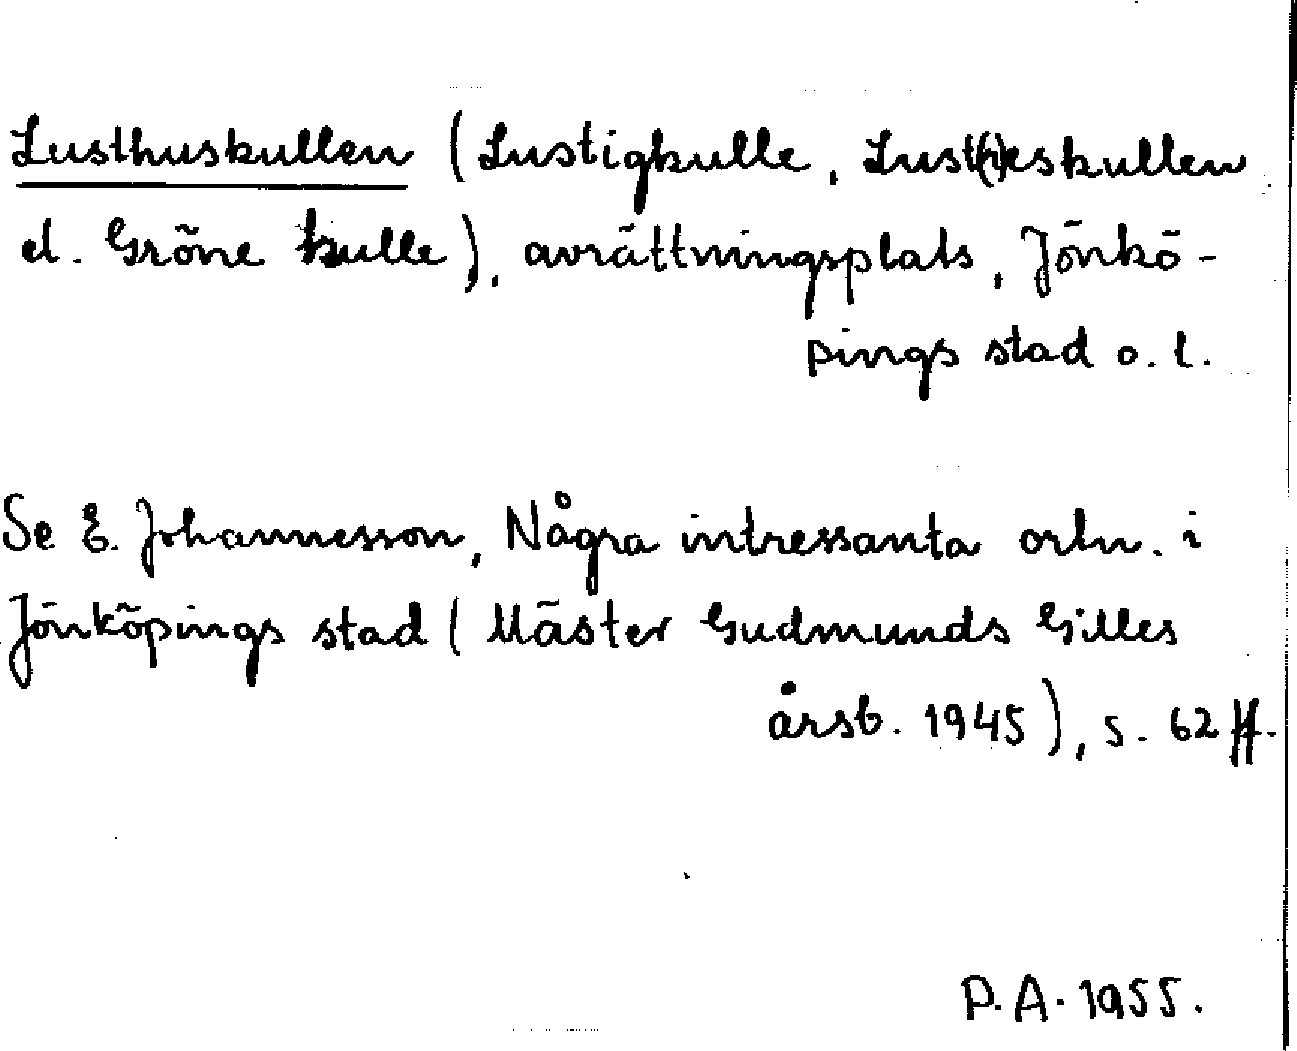 Lusthuskullen (Lustigkulle, Lust(h)eskullen
el. Gröne kulle), avrättningsplats, Jönkö-
pings stad o. l.
Se E. Johannesson, Några intressanta ortn. i
Jönköpings stad (Mäster Gudmunds Gilles
årsb. 1945), s. 62 ff.
P.A. 1955.